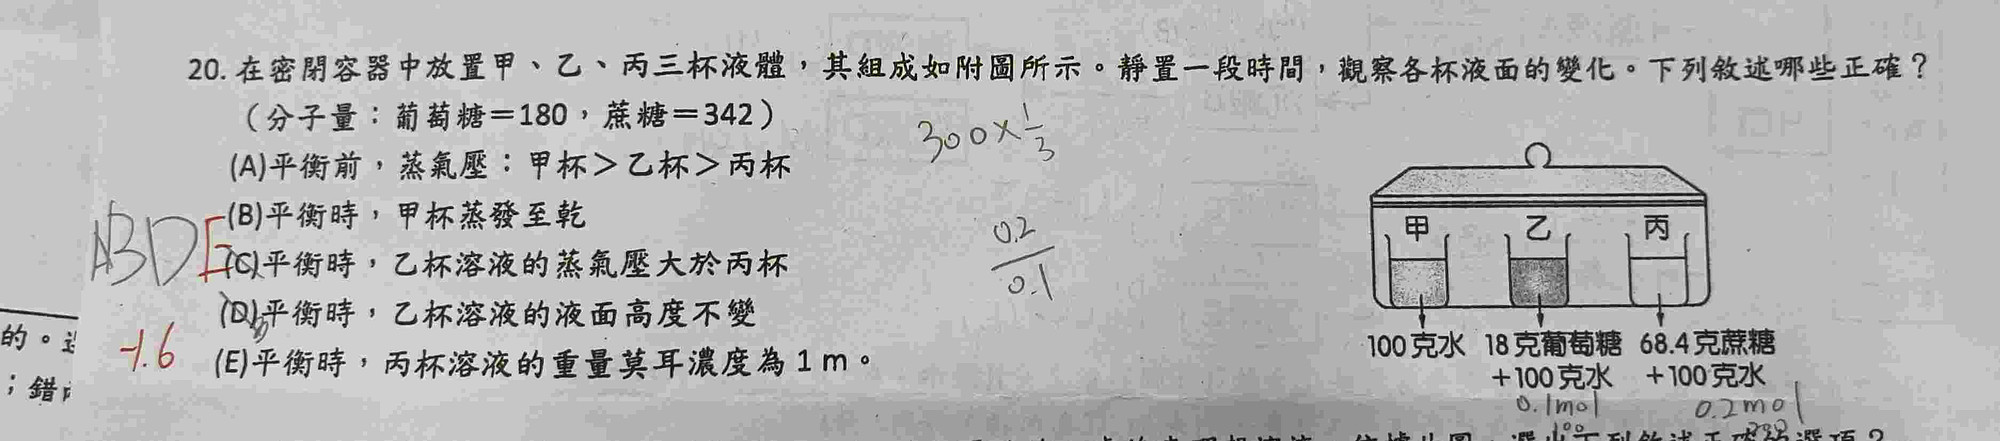 20. 在密閉容器中放置甲、乙、丙三杯液體，其組成如附圖所示。靜置一段時間，觀察各杯液面的變化。下列敘述哪些正確？
（分子量：葡萄糖＝180，蔗糖＝342）
300×1/3
(A)平衡前，蒸氣壓：甲杯＞乙杯＞丙杯
(B)平衡時，甲杯蒸發至乾
ABDE
(C)平衡時，乙杯溶液的蒸氣壓大於丙杯
0.2/0.1
(D)平衡時，乙杯溶液的液面高度不變
-1.6
(E)平衡時，丙杯溶液的重量莫耳濃度為 1 m。
甲 乙 丙
100克水 18克葡萄糖 68.4克蔗糖
+100克水 +100克水
0.1mol 0.2mol
100
的。
；錯